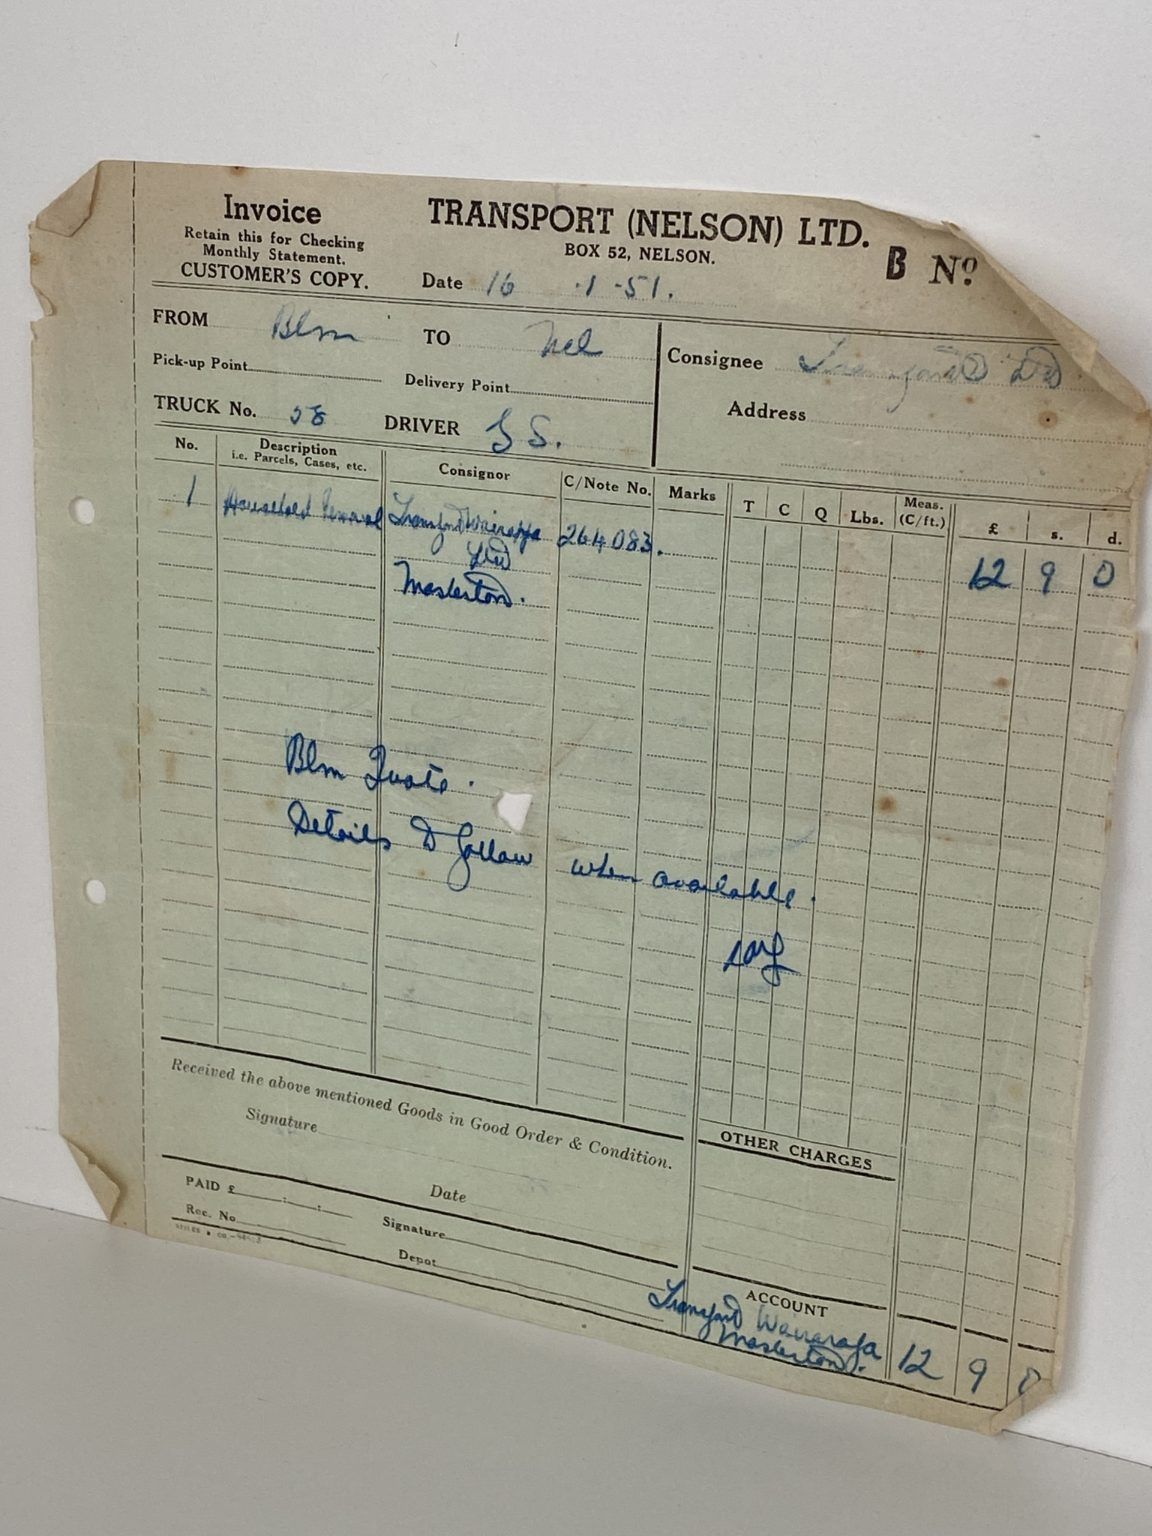 Invoice
Retain this for Checking
Monthly Statement.
CUSTOMER'S COPY.
TRANSPORT (NELSON) LTD.
BOX 52, NELSON.
B No.
Date 16 .1 -51.
FROM Blm TO Nel
Pick-up Point Delivery Point
TRUCK No. 58 DRIVER S.
Consignee Ltd
Address
No. Description Consignor C/Note No. Marks T C Q Lbs. Meas. £ s. d.
i.e. Parcels, Cases, etc. (C/ft.)
1 Household Removal Transport Wairarapa 264083. 12 9 0
Ltd
Masterton.
Blm Quote.
Details to follow when available.
Received the above mentioned Goods in Good Order & Condition.
Signature
Date
OTHER CHARGES
PAID £ : :
Rec. No.
Signature
Depot
ACCOUNT
Transport Wairarapa
Masterton.
12 9 0